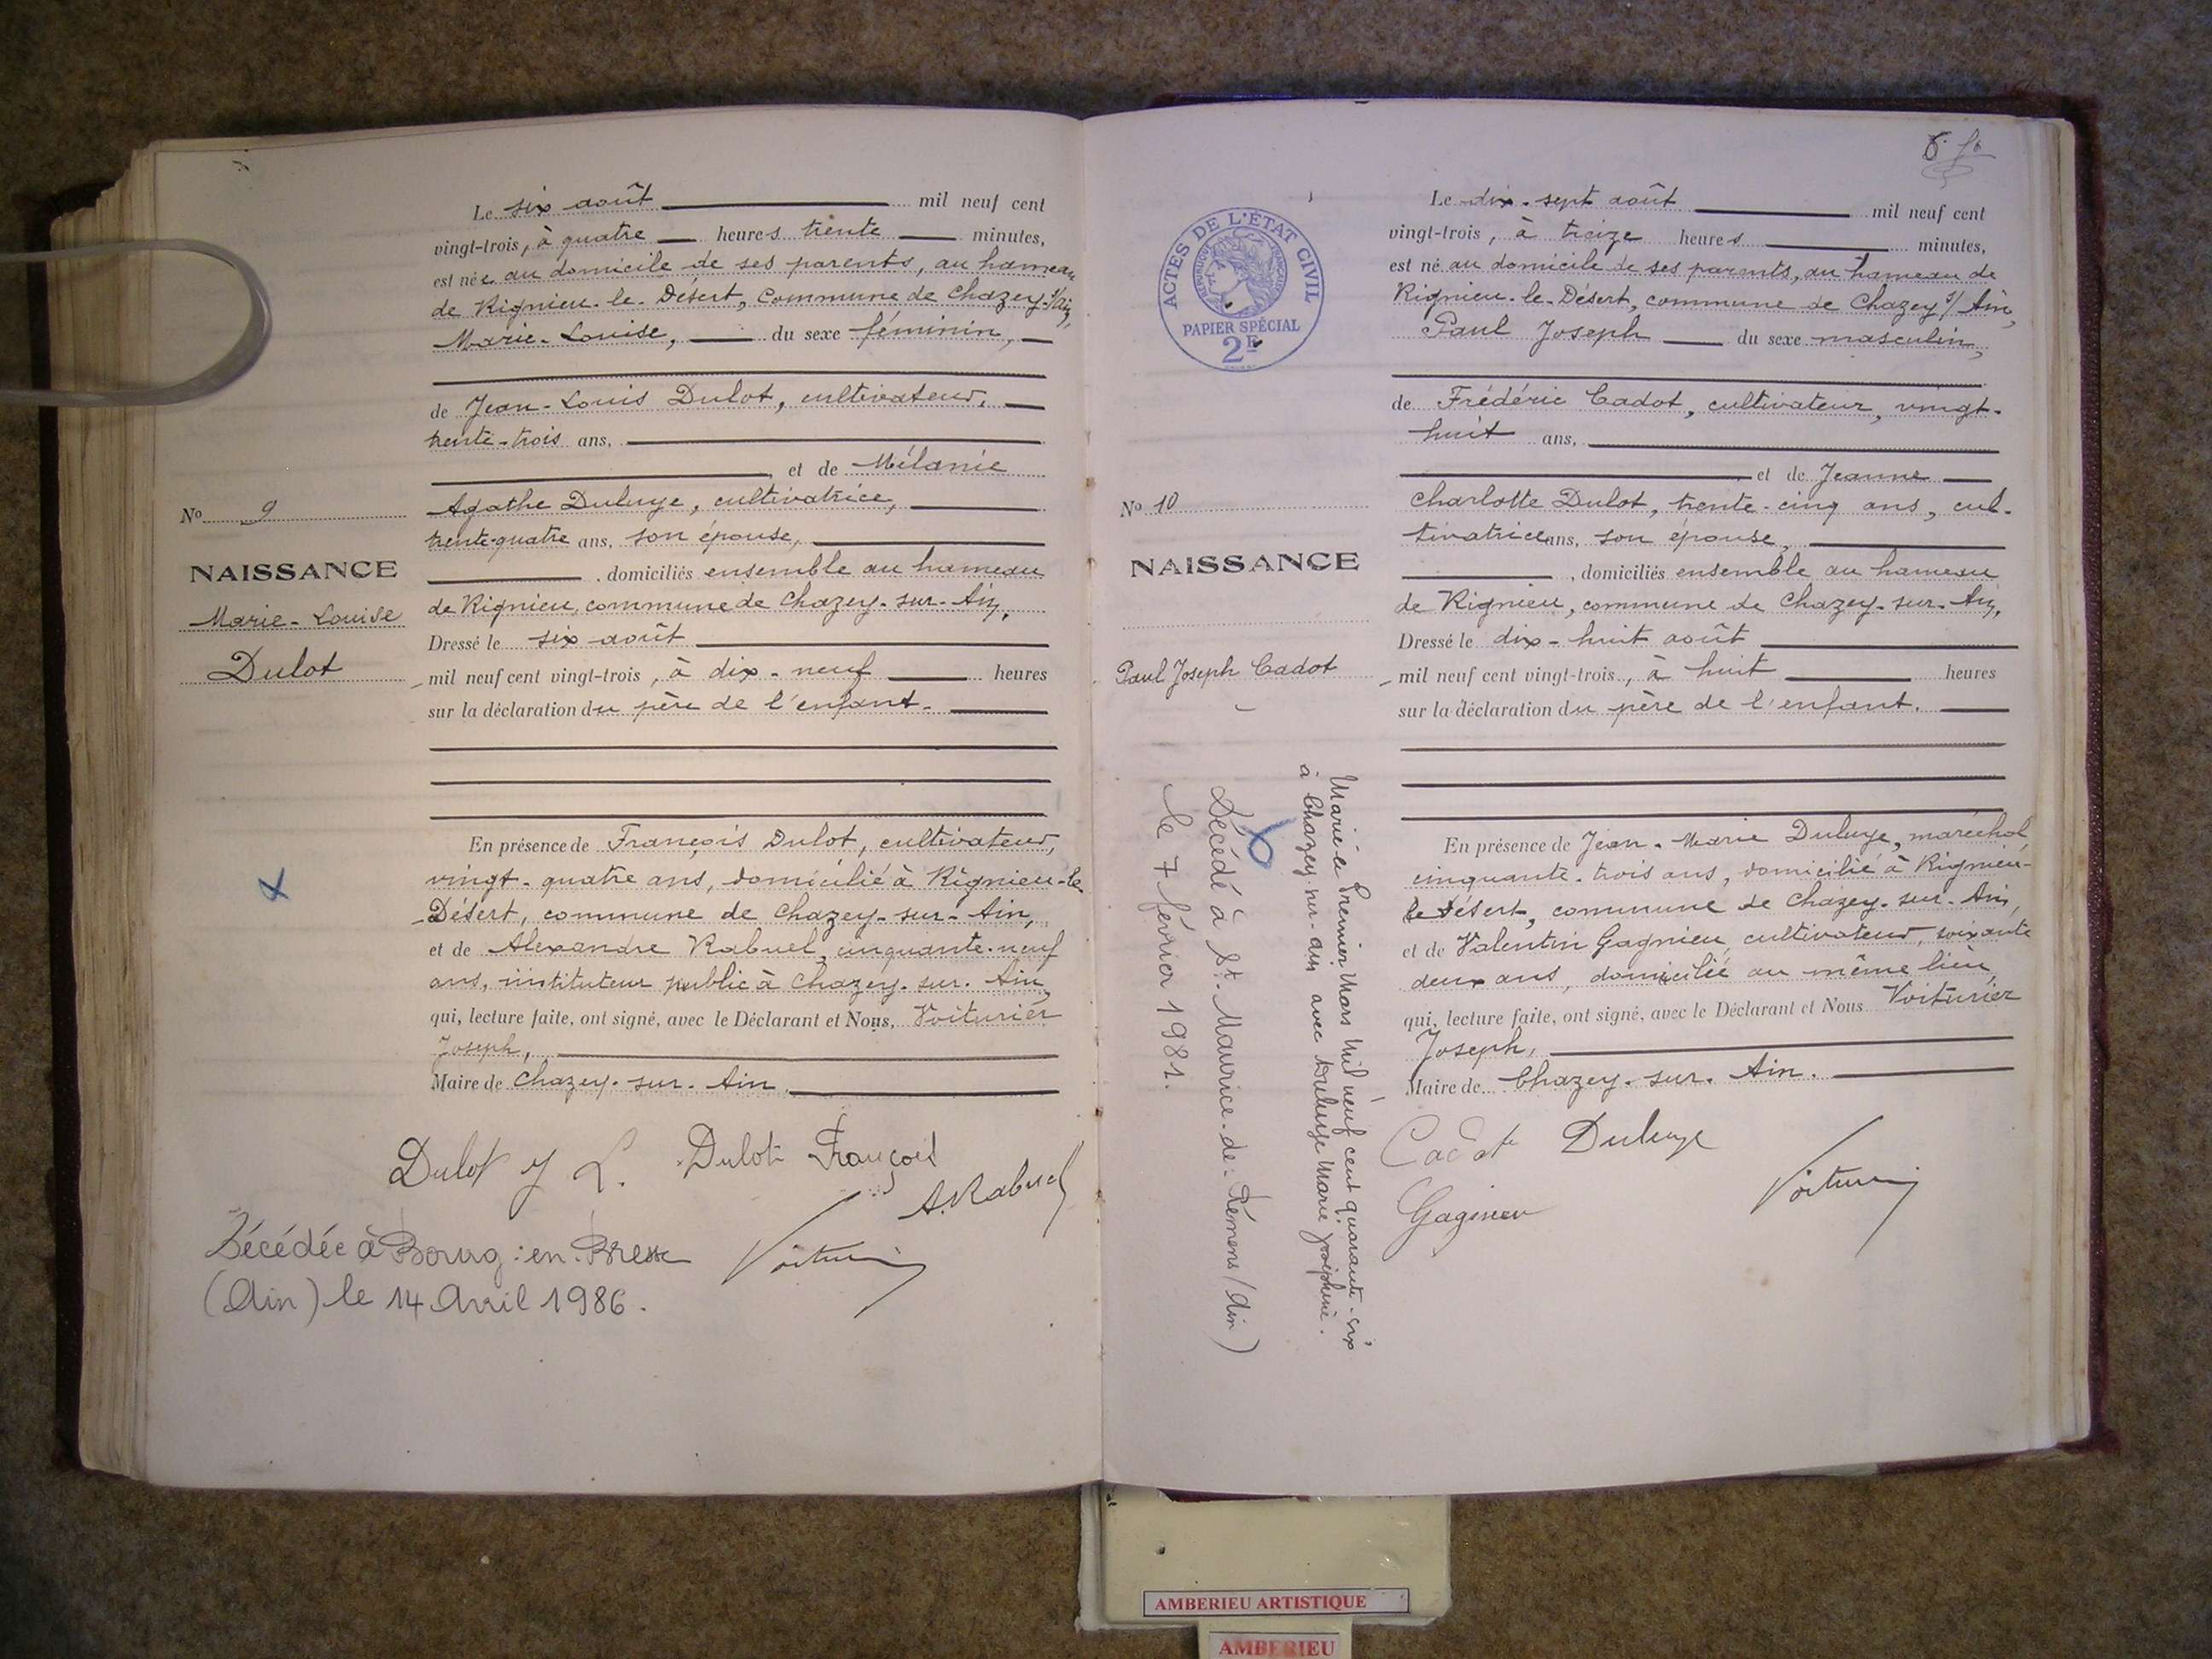 Le six août mil neuf cent
vingt-trois, à quatre heures trente minutes,
est née au domicile de ses parents, au hameau
de Rignieu-le-Désert, Commune de Chazey-s/Ain,
Marie-Louise, du sexe féminin,
de Jean-Louis Dulot, cultivateur,
trente-trois ans,
et de Mélanie
Agathe Duluye, cultivatrice,
trente-quatre ans, son épouse,
, domiciliés ensemble au hameau
de Rignieu, commune de Chazey-sur-Ain,
Dressé le six août
mil neuf cent vingt-trois, à dix-neuf heures
sur la déclaration du père de l'enfant.
En présence de François Dulot, cultivateur,
vingt-quatre ans, domicilié à Rignieu-le-
Désert, commune de Chazey-sur-Ain,
et de Alexandre Rabuel, cinquante-neuf
ans, instituteur public à Chazey-sur-Ain,
qui, lecture faite, ont signé, avec le Déclarant et Nous, Voiturier
Joseph,
Maire de Chazey-sur-Ain.
No 9
NAISSANCE
Marie-Louise
Dulot
Dulot J L. Dulot François
A. Rabuel
Voiturier
Décédée à Bourg-en-Bresse
(Ain) le 14 Avril 1986.
6
ACTES DE L'ÉTAT CIVIL
RÉPUBLIQUE FRANÇAISE
PAPIER SPÉCIAL
2F
Le dix-sept août mil neuf cent
vingt-trois, à treize heures minutes,
est né au domicile de ses parents, au hameau de
Rignieu-le-Désert, commune de Chazey s/ Ain,
Paul Joseph du sexe masculin,
de Frédéric Cadot, cultivateur, vingt-
huit ans,
et de Jeanne
Charlotte Dulot, trente-cinq ans, cul-
tivatrice ans, son épouse,
, domiciliés ensemble au hameau
de Rignieu, commune de Chazey-sur-Ain,
Dressé le dix-huit août
mil neuf cent vingt-trois, à huit heures
sur la déclaration du père de l'enfant.
En présence de Jean-Marie Duluye, maréchal
cinquante-trois ans, domicilié à Rignieu-
le Désert, commune de Chazey-sur-Ain,
et de Valentin Gagnieu, cultivateur, soixante
deux ans, domicilié au même lieu,
qui, lecture faite, ont signé, avec le Déclarant et Nous Voiturier
Joseph,
Maire de Chazey-sur-Ain.
No 10
NAISSANCE
Paul Joseph Cadot
Marié le Premier Mars Mil neuf cent quarante-six
à Chazey-sur-ain avec Duluye Marie Joséphine.
Décédé à St-Maurice-de-Rémens (Ain)
le 7 février 1981.
Cadot Duluye
Gagnieu
Voiturier
AMBERIEU ARTISTIQUE
AMBERIEU